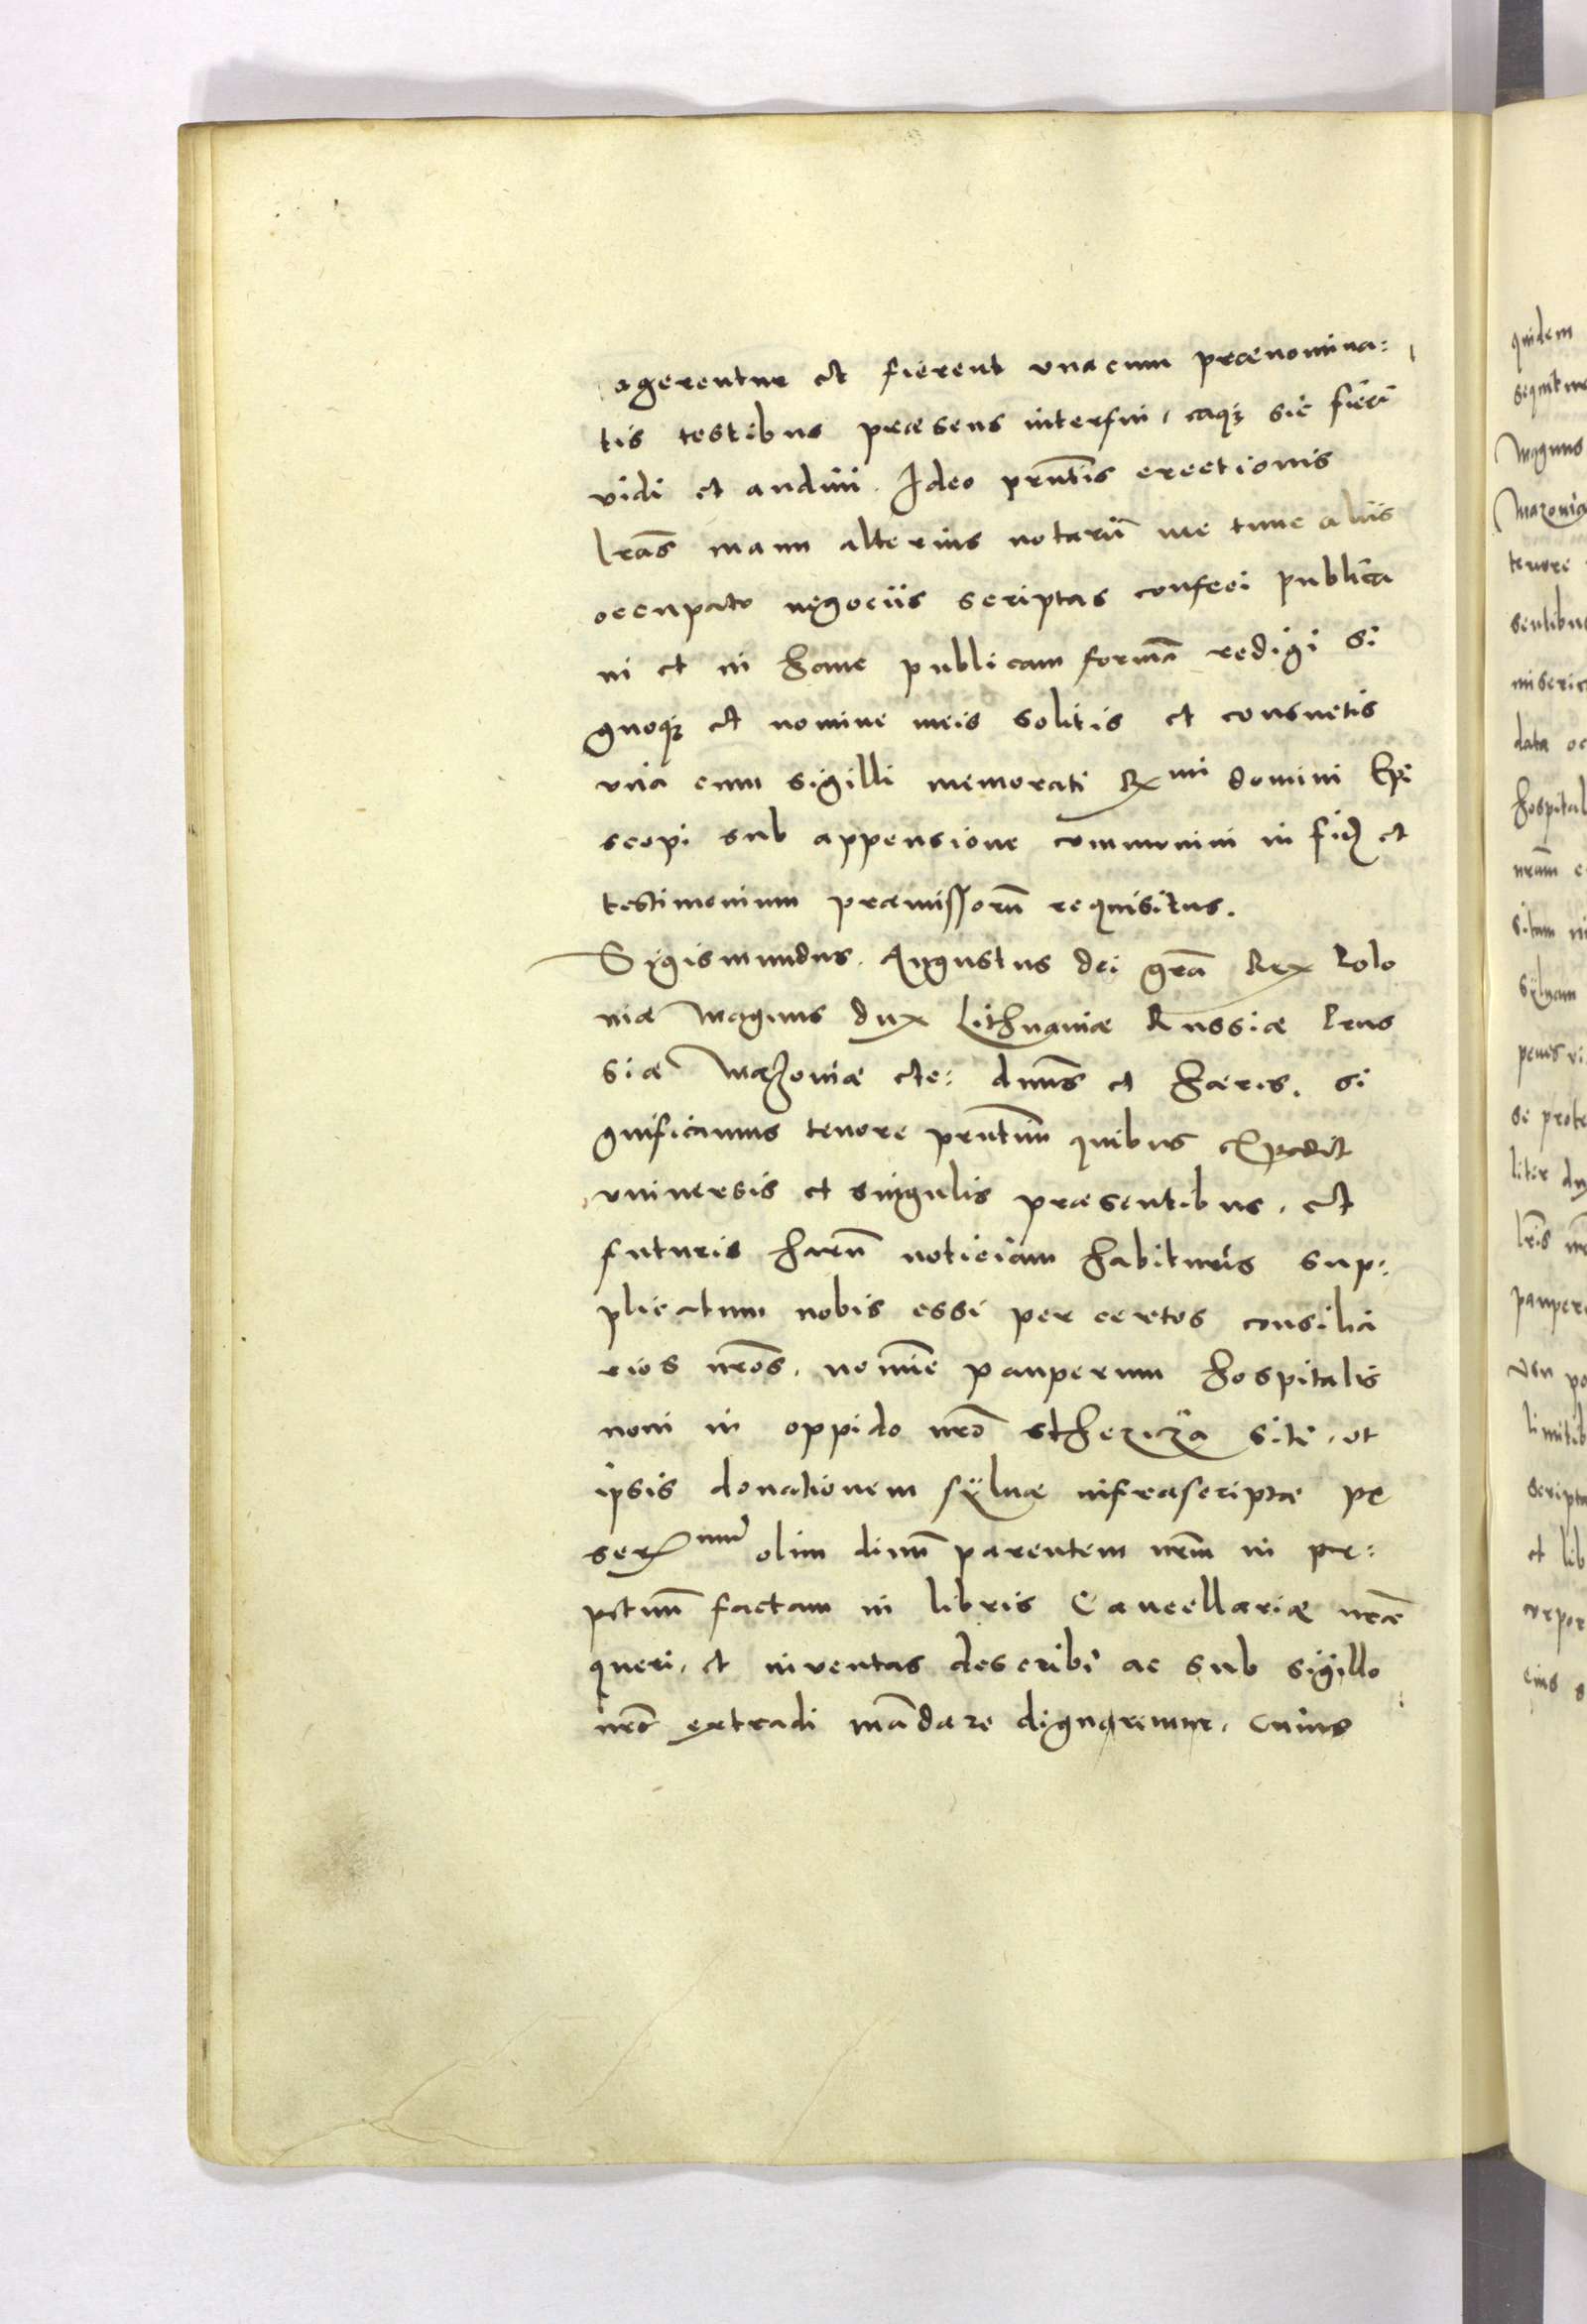 agerentur et fierent vna cum prænomina:
tis testibus præsens interfui, eaqȝ sic fieri
vidi et audiui. Ideo pr̄ntis erectionis
lr̄as manu alterius notarii me tunc aliis
occupato negociis scriptas confeci publica
ui et in hanc publicam formā redigi Si
gnoqȝ et nomine meis solitis et consuetis
vna cum sigilli memorati Rx mi domini Epi
scopi sub appensione communiui in fidē et
testimonium præmissorū requisitus.
Sigismundus. Augustus dei gr̄a Rex Polo
niæ Magnus dux Lithuaniæ Russiæ Prus
siæ Mazouiæ etc: dnūs et hæres. Si
gnificamus tenore pr̄ntium quibus expedit
vniuersis et singulis præsentibus, et
futuris harū noticiam habituris sup:
plicatum nobis esse per certos consilia
rios nr̄os, nomīe pauperum hospitalis
noui in oppido nr̄o sthezicza siti, vt
ipsis donationem syluæ infrascriptæ per
serx mū olim diuū parentem nr̄m in per:
petuū factam in libris Cancellariæ nr̄æ
queri, et inuentas describi ac sub sigillo
nr̄o extradi mādare dignaremur. Cuius
quidem
sequitur
Magnus
Mazouiæ
tenore
sentibus
miseric
data
hospital
nr̄am
sitam in
syluam
se prote
liter
lr̄is
pauper
vsu
limitib
scripta
et lib
corpor
eius